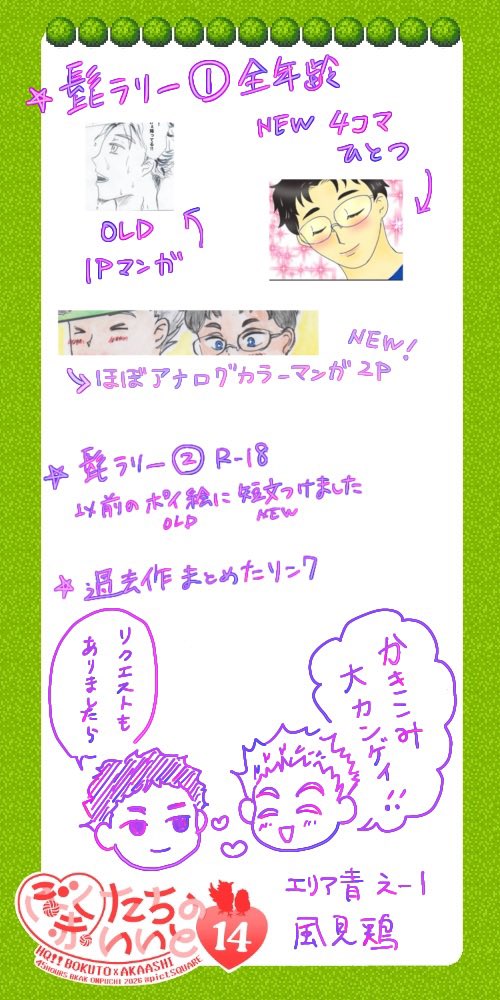 ☆髭ラリー①全年齢
NEW 4コマ
ひとつ
OLD
1Pマンガ
NEW!
ほぼアナログカラーマンガ2P
☆髭ラリー② R-18
以前のポイ絵に短文つけました
OLD NEW
☆過去作まとめたリンク
リクエストも
ありましたら
かきこみ
大カンゲイ!!
エリア青 えー1
風見鶏
ぼくたちの
赤いいと
14
HQ!! BOKUTO×AKAASHI
45HOURS BKAK ONPUCHI 2026 @pictSQUARE